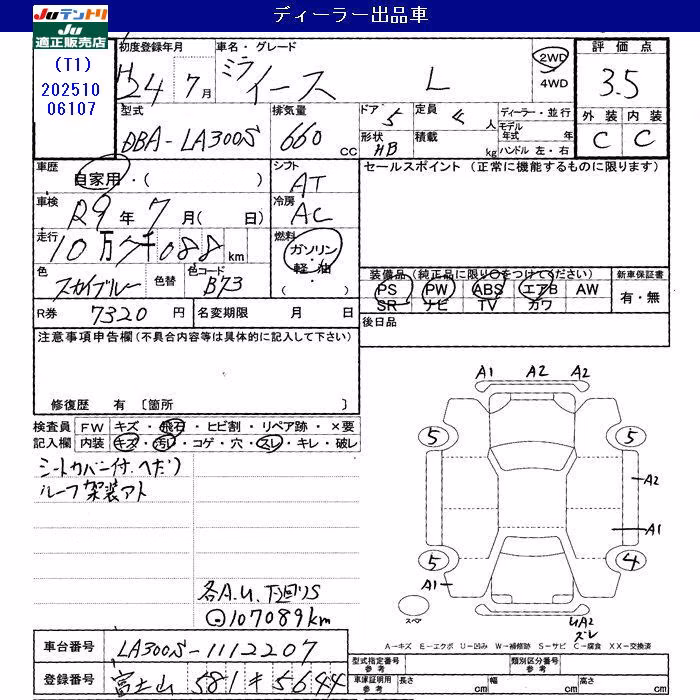 ディーラー出品車
JUテントリ
JU
適正販売店
(T1)
202510
06107
初度登録年月
車名・グレード
H24 7月
ミライース L
2WD
4WD
評価点
3.5
外装 内装
C C
型式
DBA-LA300S
排気量
660 cc
ドア 5
定員 4 人
ディーラー・並行
モデル年式 年
形状 HB
積載 kg
ハンドル 左・右
車歴
自家用・( )
シフト
AT
セールスポイント (正常に機能するものに限ります)
車検
R9年 7月( 日)
冷房
AC
走行
10万7千088km
燃料
ガソリン・軽油・( )
色
スカイブルー
色替
色コード
B73
装備品(純正品に限り○をつけてください)
新車保証書
PS PW ABS エアB AW
有・無
SR ナビ TV カワ
R券 7320 円
名変期限 月 日
後日品
注意事項申告欄(不具合内容等は具体的に記入して下さい)
修復歴 有 〔箇所 〕
検査員記入欄
FW キズ・飛石・ヒビ割・リペア跡・×要
内装 キズ・汚レ・コゲ・穴・スレ・キレ・破レ
シートカバー付、ヘタリ
ルーフ架装アト
各A.U.下廻りS
107089km
A1 A2 A2
5 5
A2
A1
5 4
A1
UA2
ズレ
スペア
A-キズ E-エクボ U-凹み W-補修跡 S-サビ C-腐食 XX-交換済
車台番号
LA300S-1112207
登録番号
富士山 581 キ 5644
型式指定番号 参考
類別区分番号 参考
車庫証明用 参考
長さ cm 幅 cm 高さ cm